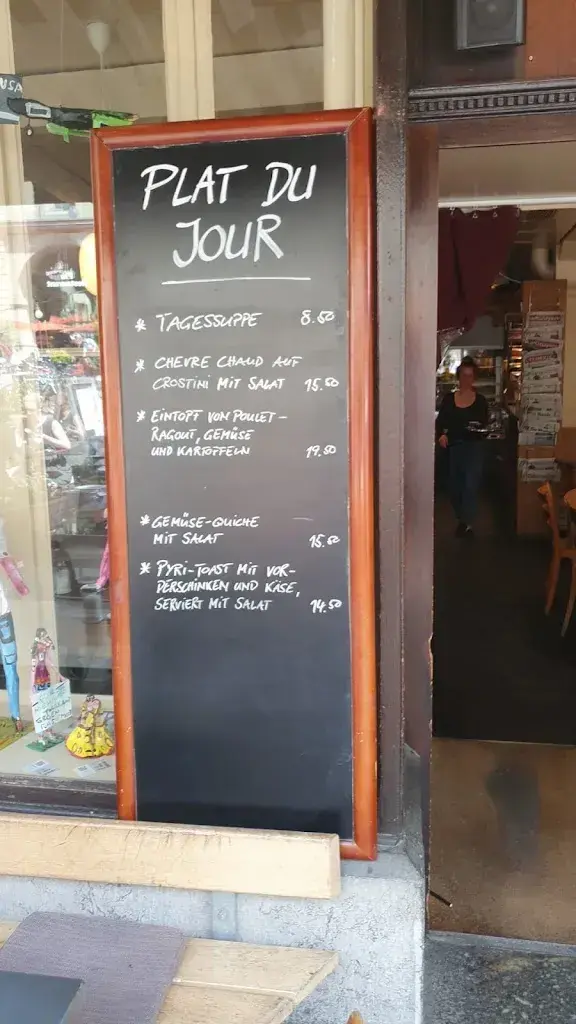 PLAT DU
JOUR
* TAGESSUPPE 8.50
* CHEVRE CHAUD AUF
CROSTINI MIT SALAT 15.50
* EINTOPF VON POULET-
RAGOUT, GEMÜSE
UND KARTOFFELN 19.50
* GEMÜSE-QUICHE
MIT SALAT 15.50
* PYRI-TOAST MIT VOR-
DERSCHINKEN UND KÄSE,
SERVIERT MIT SALAT 14.50